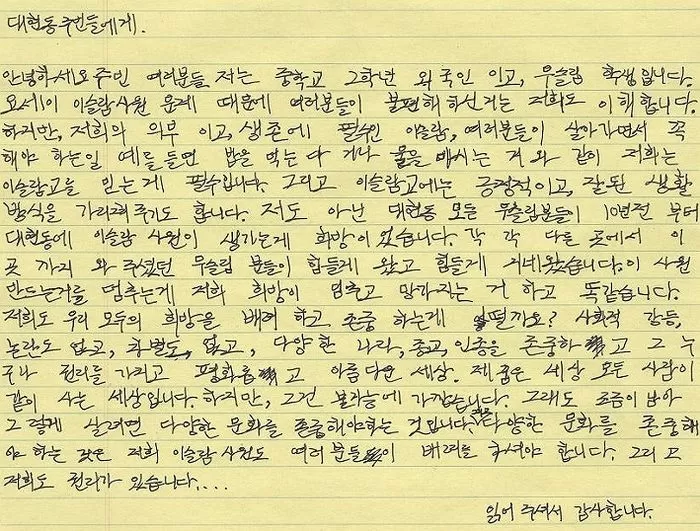 대현동주민들에게.
안녕하세요 주민 여러분들, 저는 중학교 2학년 외국인 이고, 무슬림 학생입니다.
요세이 이슬람사원 문제 때문에 여러분들이 불편해 하신거는 저희도 이해합니다.
하지만, 저희의 의무 이고, 생존에 필수인 이슬람, 여러분들이 살아가면서 꼭
해야 하는일 예를 들면 밥을 먹는 다 거나 물을 마시는 거 와 같이 저희는
이슬람교를 믿는게 필수입니다. 그리고 이슬람교에는 긍정적이고, 잘된 생활
방식을 가리켜주기도 합니다. 저도 아닌 대현동 모든 무슬림분들이 10년전 부터
대현동에 이슬람 사원이 생기는게 희망이었습니다. 각 각 다른 곳에서 이
곳 까지 와 주셨던 무슬림 분들이 힘들게 왔고 힘들게 지내왔습니다. 이 사원
만드는거를 멈추는게 저희 희망이 멈추고 망가지는 거 하고 똑같습니다.
저희도 우리 모두의 희망을 배려 하고 존중 하는게 어떨까요? 사회적 갈등,
논란도 없고, 차별도, 없고, 다양한 나라, 종교, 인종을 존중하고 그 누
구나 권리를 가지고 평화롭고 아름다운 세상. 제 꿈은 세상 모든 사람이
같이 사는 세상입니다. 하지만, 그건 불가능에 가깝습니다. 그래도 조금이 남아
그렇게 살려면 다양한 문화를 존중해야하는 것입니다. 다양한 문화를 존중해
야 하는 것은 저희 이슬람사원도 여러분들이 배려를 하셔야 합니다. 그리고
저희도 권리가 있습니다....
읽어 주셔서 감사합니다.